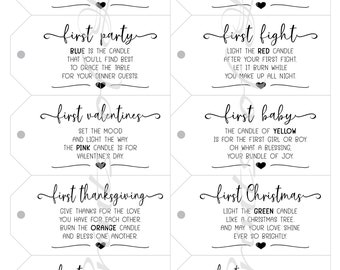 first party
BLUE IS THE CANDLE
THAT YOU'LL FIND BEST
TO GRACE THE TABLE
FOR YOUR DINNER GUESTS
first fight
LIGHT THE RED CANDLE
AFTER YOUR FIRST FIGHT.
LET IT BURN WHILE
YOU MAKE UP ALL NIGHT
first valentines
SET THE MOOD
AND LIGHT THE WAY
THE PINK CANDLE IS FOR
VALENTINE'S DAY
first baby
THE CANDLE OF YELLOW
IS FOR THE FIRST GIRL OR BOY
OH WHAT A BLESSING,
YOUR BUNDLE OF JOY
first thanksgiving
GIVE THANKS FOR THE LOVE
YOU HAVE FOR EACH OTHER
BURN THE ORANGE CANDLE
AND BLESS ONE ANOTHER
first Christmas
LIGHT THE GREEN CANDLE
LIKE A CHRISTMAS TREE
AND MAY YOUR LOVE SHINE
EVER SO BRIGHTLY